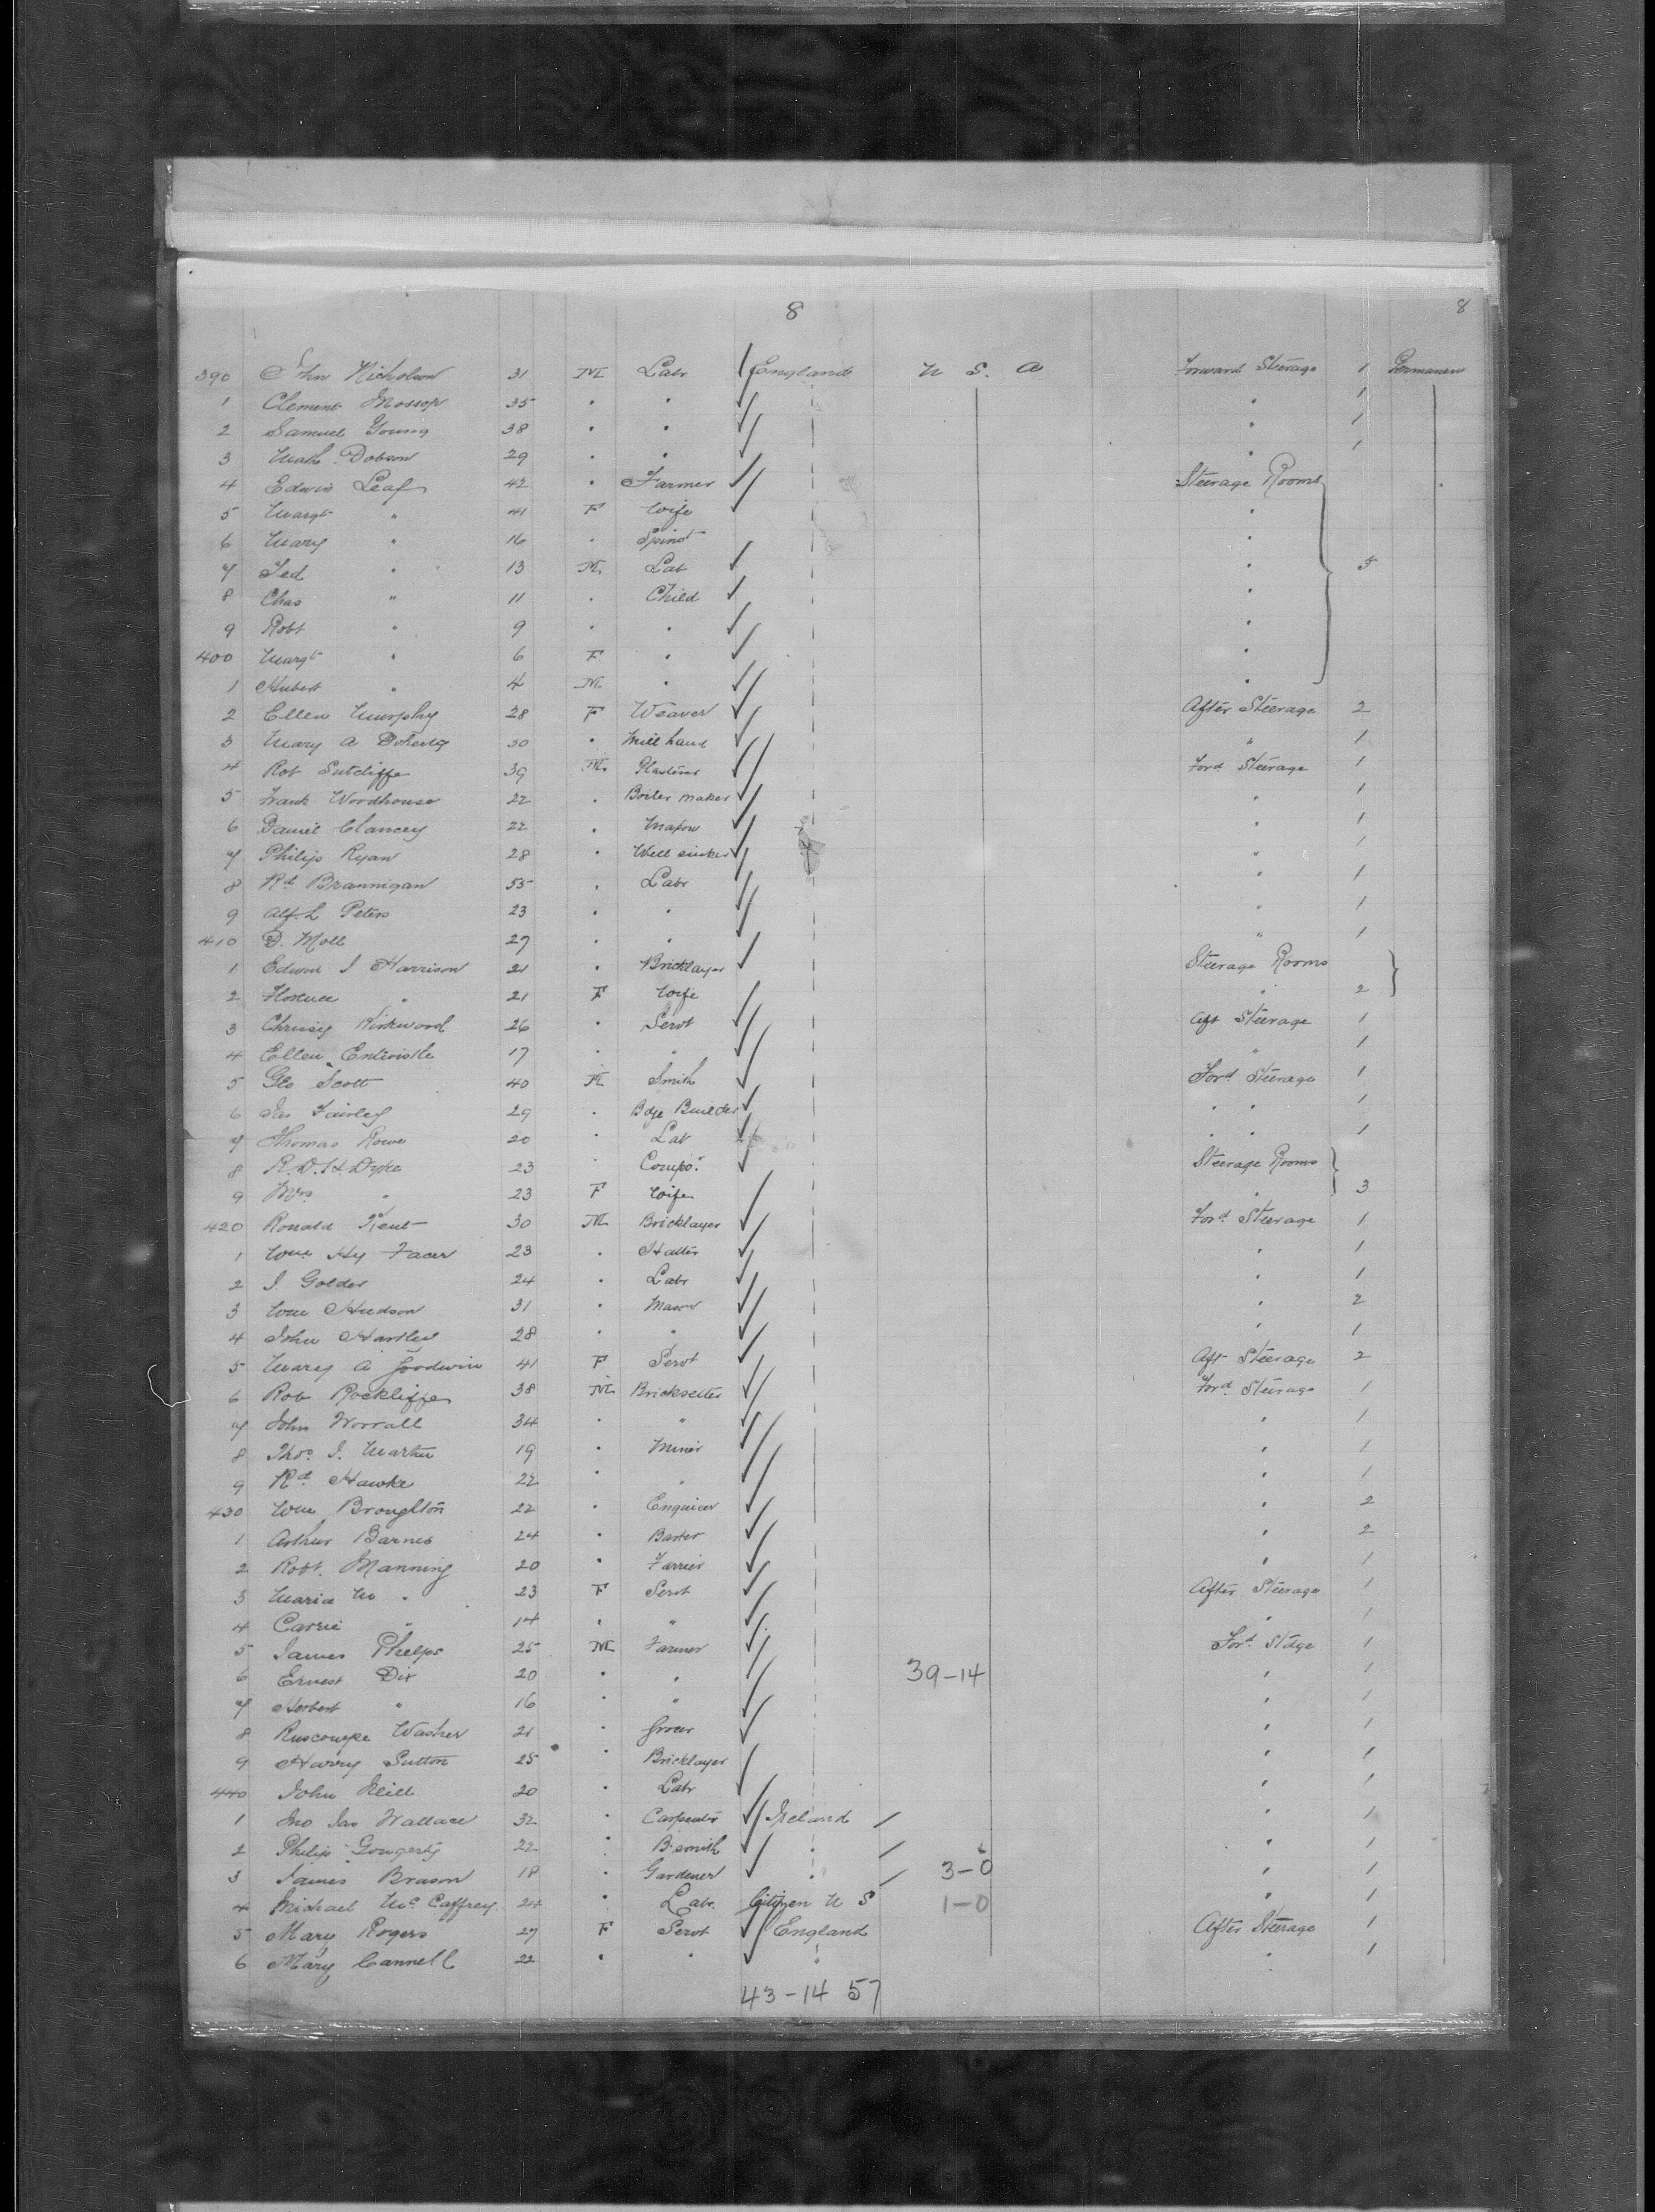 8 8
390 John Nicholson 31 M Labr England U S. A Forward Steerage 1 Permanent
1 Clement Mossop 35 " " " 1
2 Samuel Young 38 " " " 1
3 Dobson 29 " " " 1
4 Edwin Leaf 42 " Farmer Steerage Rooms
5 Margt " 41 F Wife "
6 Mary " 16 " Spinst "
7 Ted " 13 M Lab " 5
8 Chas " 11 " Child "
9 Robt " 9 " " "
400 Margt " 6 F " "
1 Hubert " 4 M " "
2 Ellen Murphy 28 F Weaver After Steerage 2
3 Mary A Doherty 30 " Mill hand " 1
4 Rob Sutcliffe 39 M Plasterer Ford Steerage 1
5 Frank Woodhouse 22 " Boiler maker " 1
6 Daniel Clancey 22 " Mason " 1
7 Philip Ryan 28 " Well sinker " 1
8 Rd Brannigan 55 " Labr " 1
9 Alf. L Peters 23 " " " 1
410 D. Moll 27 " " " 1
1 Edwin J Harrison 21 " Bricklayer Steerage Rooms
2 Florence " 21 F Wife " 2
3 Chrissy Kirkwood 26 " Servt Aft Steerage 1
4 Ellen Entwistle 17 " " " 1
5 Geo Scott 40 M Smith Ford Steerage 1
6 Jas Fairley 29 " Bdge Builder " " 1
7 Thomas Rowe 20 " Lab " " 1
8 R. D. H. Dyke 23 " Compor Steerage Rooms
9 Mrs " 23 F Wife " 3
420 Ronald Kent 30 M Bricklayer Ford Steerage 1
1 Wm Hy Facer 23 " Hatter " 1
2 J. Golder 24 " Labr " 1
3 Wm Hudson 31 " Mason " 2
4 John 28 " " " 1
5 Mary A Goodwin 41 F Servt Aft Steerage 2
6 Rob Rockliffe 38 M Bricksetter Ford Steerage 1
7 John Worrall 34 " " " 1
8 Thos J. Martin 19 " Miner " 1
9 Rd Hawke 22 " " " 1
430 Wm Broughton 22 " Engineer " 2
1 Arthur Barnes 24 " " 2
2 Robt. Manning 20 " Farrier " 1
3 Maria M " 23 F Servt After Steerage 1
4 Carrie " 14 " " " 1
5 James Phelps 25 M Farmer Ford Stdge 1
6 Ernest Dix 20 " " 39-14 " 1
7 Herbert " 16 " " " 1
8 Washer 21 " Grocer " 1
9 Harry Sutton 25 " Bricklayer " 1
440 John Neill 20 " Labr " 1
1 Jno Jas Wallace 32 " Carpenter Ireland " 1
2 Philip 22 " B.smith " " 1
3 James Brason 18 " Gardener " 3-0 " 1
4 Michael Mc Caffrey 24 " Labr. Citizen U S 1-0 " 1
5 Mary Rogers 27 F Servt England After Steerage 1
6 Mary Cannell 22 " " " " 1
43-14 57